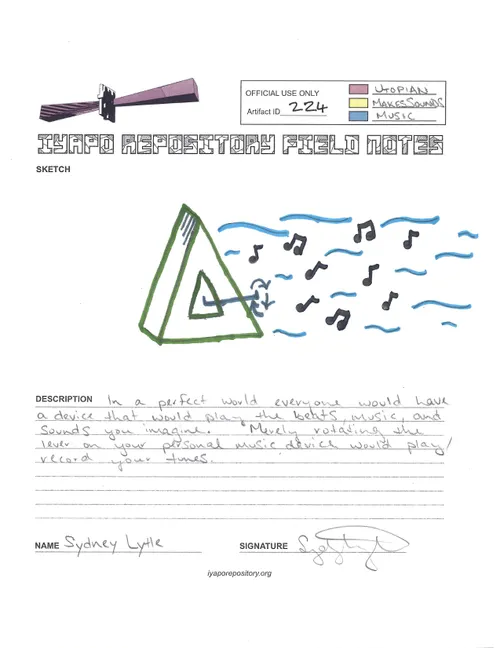 OFFICIAL USE ONLY
Artifact ID 224
UTOPIAN
MAKES SOUNDS
MUSIC
IYAPO REPOSITORY FIELD NOTES
SKETCH
DESCRIPTION In a perfect world everyone would have
a device that would play the beats, music, and
sounds you imagine. Merely rotating the
lever on your personal music device would play/
record your tunes.
NAME Sydney Lytle
SIGNATURE
iyaporepository.org